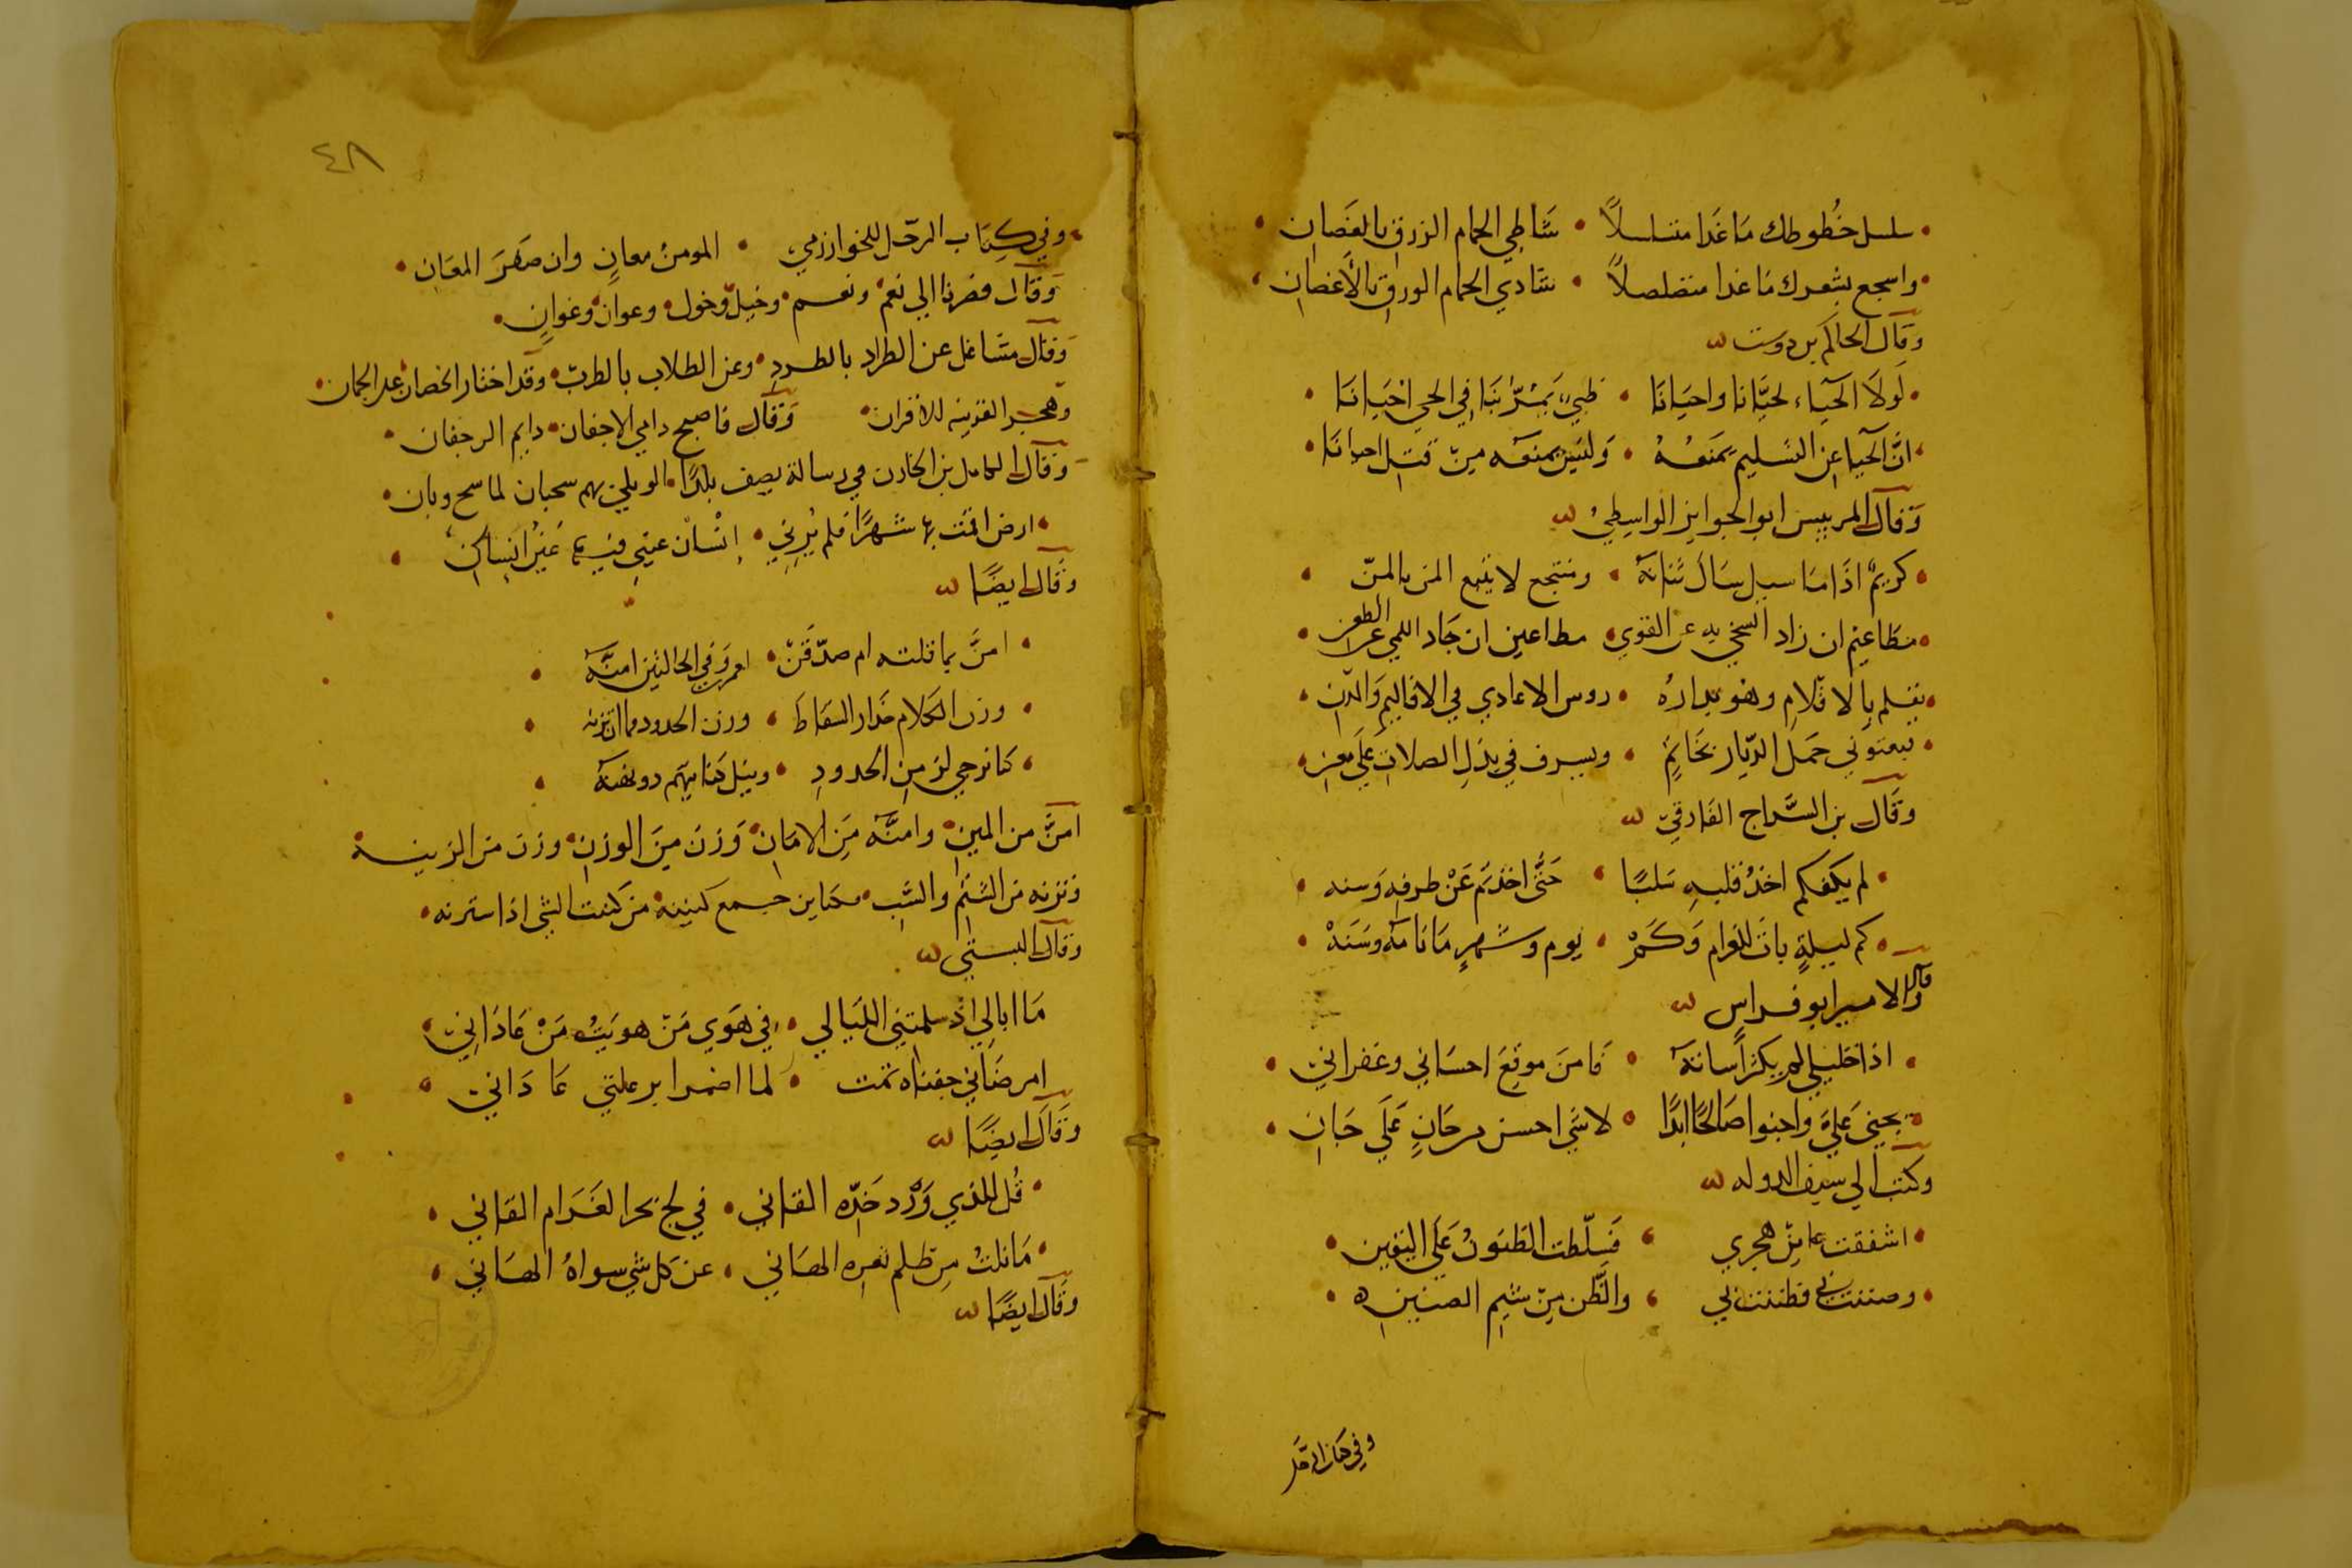 سلسل خُطوطك مَا غَدا متسلسلاً • شَاطي الحمام الزرق بالغصَان
واسجع بشعرك مَا غدا متصلصلاً • شادي الحمام الورق بالأغصان
وقال الحاكم بن دوست
لَولاَ الحيَاء لحيَّانا واحيَانَا • ظبي يَمُرّ بنَا في الحي احْيَانَا
انَّ الحيا عن التسليم يمنعُهُ • وَليس يمنعه مِن قتل احيانَا
وَقال الرييس ابو الجوايز الواسِطيُ
كريمٌ اذَا مَا سيل سَال بَنانهُ • ومنتجع لا يتبع المن بالمنّ
مطَاعيم ان زاد السخي به عن القوي • مطاعين ان حَاد الكمي عن الطعن
يقلم بالاقلامِ وهو بدارهُ • روس الاعادي في الاقاليم وَالمدن
فيعتوني حَمل الديار بخَاتِمٍ • ويسرف في بذلِ الصلات عَلى معن
وقال بن السَّراج الفارقي
لم يكفكم اخذُ قلبهِ سَلبًا • حَتَّى اخذتم عَنْ طرفه وَسنه
كم ليلةٍ باتَ للغرام وَكَمْ • يوم وشهرٍ مَا نَامَهُ وسَنَهْ
وقال الامير ابو فراس
اذا خليلي لم يكثر اسانهُ • فَامنَ موقعَ احسَاني وغفراني
يجني عَليَّ واحنوا صَالحًا ابدًا • لا شَي احسن مِن حَانٍ عَلَى جَانِ
وكتب الي سيف الدوله
اشفقت عامِن هجري • فَسلّطت الظنونُ عَلَى اليقين
وضننت بي فظننت بي • والظّن مِن شيم الضنين
وفي كتاب الرحَل
٤٨
وفي كِتَاب الرحَل للخوارزمي • المومنُ معانِ وان صَفرَ المعَان
وَقَال فصرنا الي نعمٍ ونعم • وخيلٍ وخول • وعوانٍ وغوانٍ
وقال مشاغل عن الطراد بالطردِ • وعن الطلاب بالطربِ • وقد اختار الحصان علي الحصان
وهجر القرينه للاقران وَقال فاصبح دامي الاجفان • دايم الرجفان
وَقَال الكامل بن الخازن في رسالة يصف بلدًا • لو بلي بهم سحبان لما سح وبان
ارض اقمت بها شهرًا فلم يُرني • إنسْان عيني فيها غيرُ انسان
وَقَال ايضًا
امنَّ بما قلته ام صدّقَنْ • امروَفي الحالتين امنّه
وزن الكلام حَذار السقاط • وزن الحدود ما انت زنه
كنا نرجي لزمنِ الحدودِ • ونيل
امنَّ من المين • وامنَّه مِن الامَان • وَزن مِنَ الوزن • وزن من الزينه
وتزنه من الشتم والسَّب • كناين جمع كنينه • من كننت الشي اذا سترته
وَقال البستي
مَا ابالي اذ سلمتني الليَالي • في هَوي مَنْ هويتُ مَنْ عَاذَاني
امرضَاني جفناه ثمت • لما اضمرا بر علتي عَادَاني
وقَال ايضًا
قُل للذي وَرْد خَدّه القاني • في لج بحر الغَرَام القاني
مَا نلتُ مِن ظلم ثغره الهاني • عن كل شي سواهُ الهَاني
وقَال ايضًا